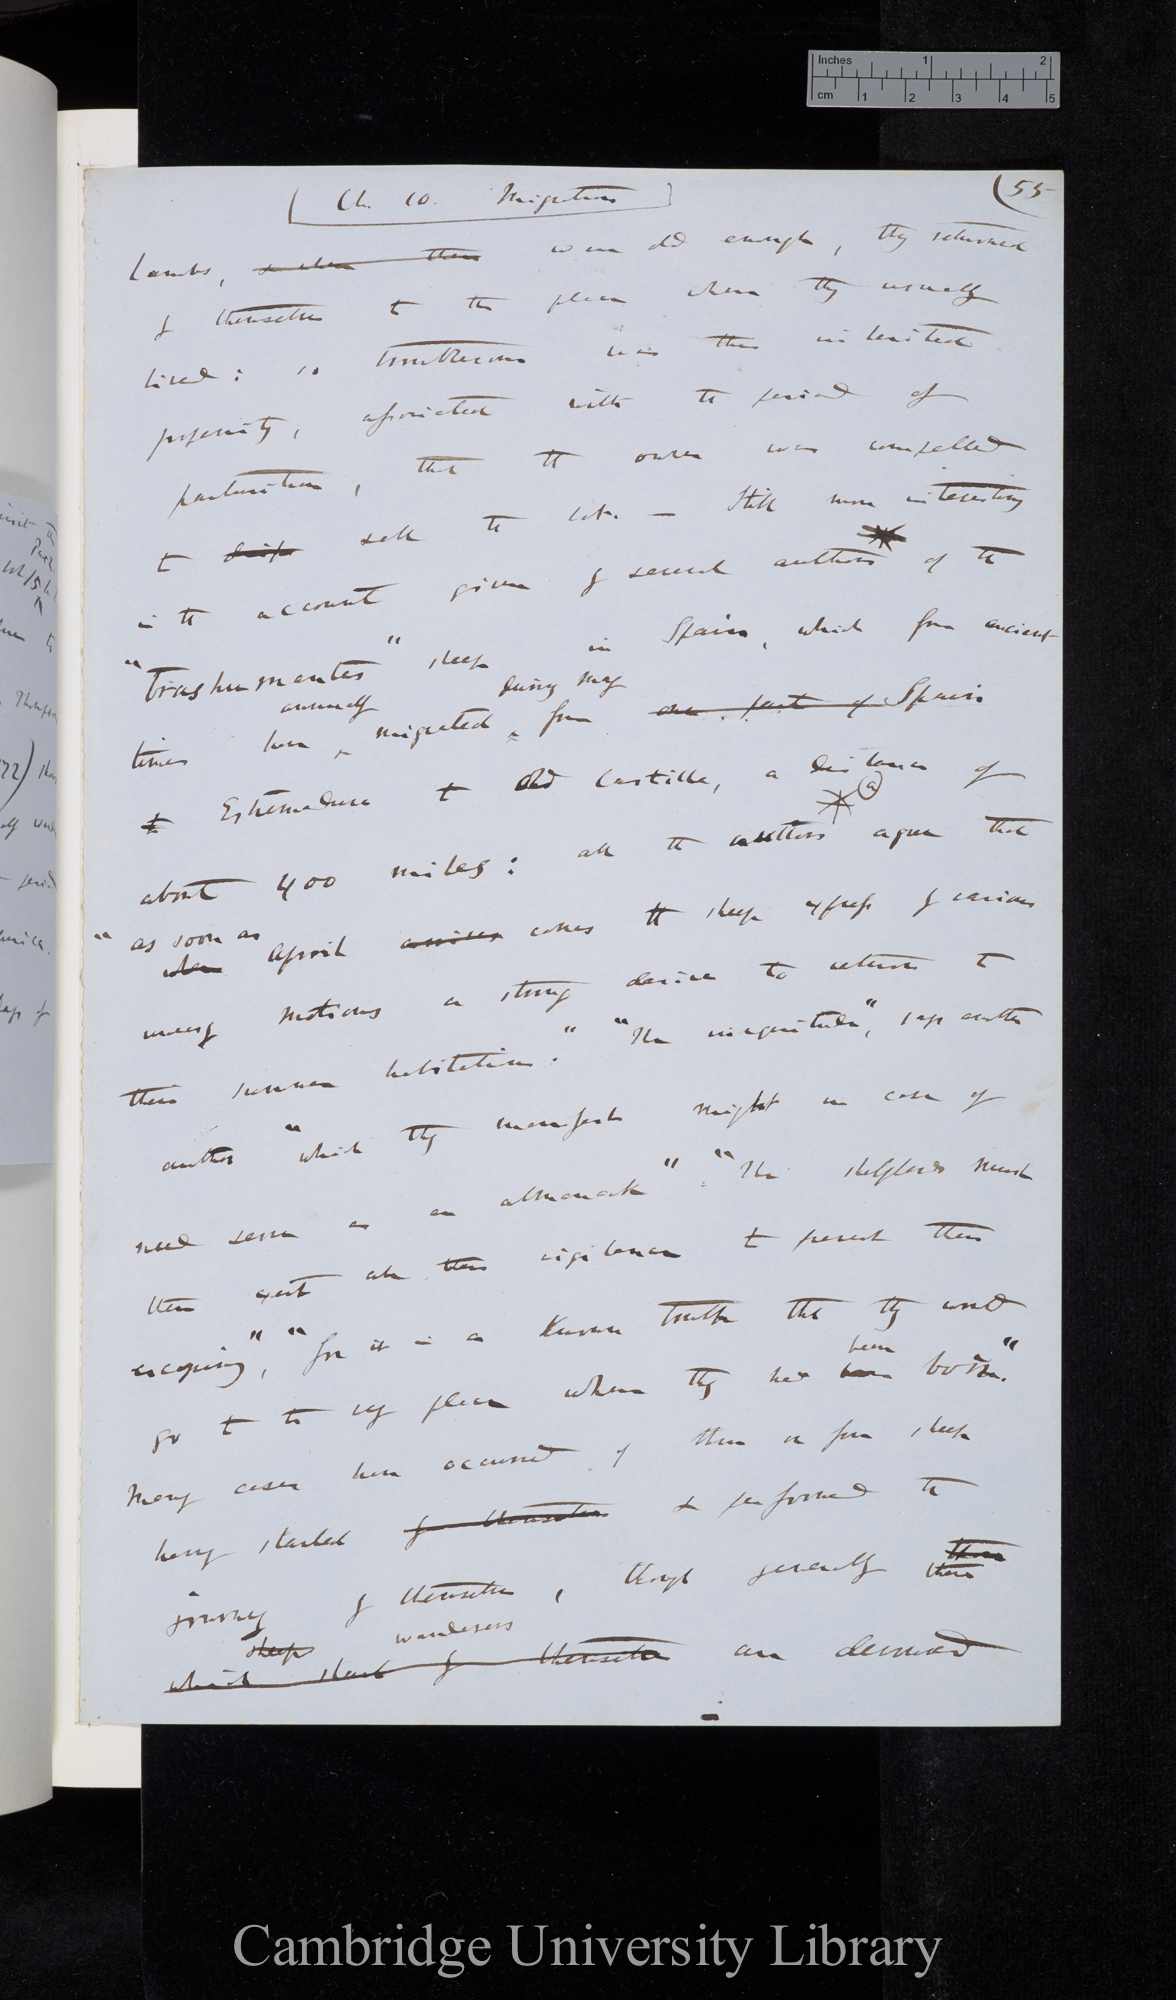 Inches 1 2
cm 1 2 3 4 5
Ch. 10. Migration
(55
Lambs, so when there were old enough, they returned
by themselves to the place where they usually
lived: so troublesome was this inherited
propensity, associated with the period of
parturition, that the owner was compelled
to sell the lot. — Still more interesting
is the account given by several authors of the
"trashumantes" sheep in Spain, which from ancient
annually during May
times have migrated from one part of Spain
to Estremadura to Old Castille, a distance of
(a)
about 400 miles: all the authors agree that
" as soon as
when April arrives comes the sheep express by various
uneasy motions a strong desire to return to
their summer habitations." "The inquietude", says another
author "which they manifest might in case of
need serve as an almanack": "The shepherds must
then exert all their vigilance to prevent them
escaping", "for it is a known truth that they would
been
go to the very place where they had been born."
Many cases have occurred of three or four sheep
having started by themselves & performed the
journey by themselves, though generally these
sheep wanderers
which start by themselves are destroyed
Cambridge University Library